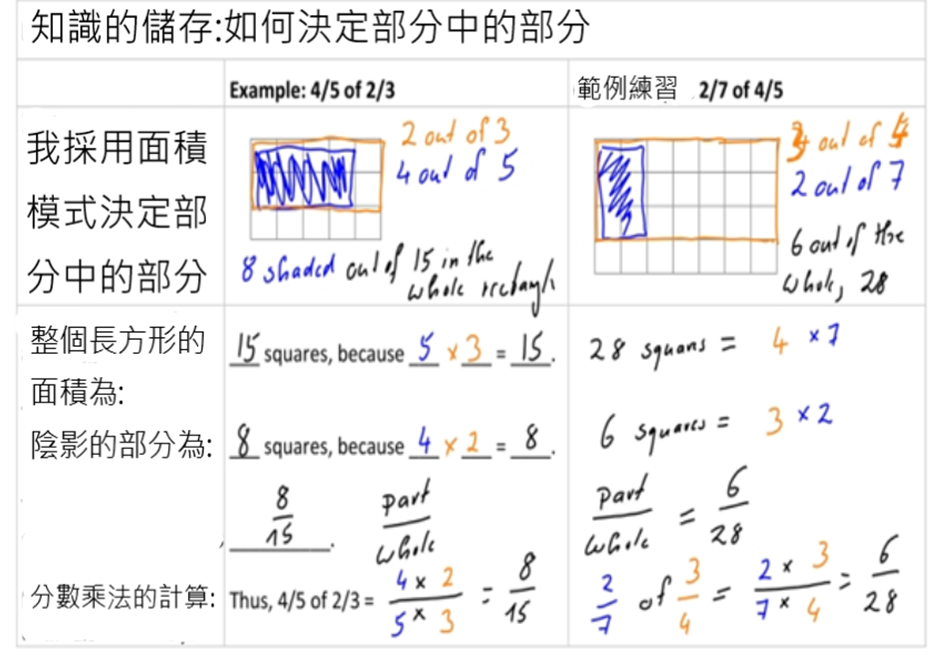 知識的儲存:如何決定部分中的部分
Example: 4/5 of 2/3
範例練習 2/7 of 4/5
我採用面積
模式決定部
分中的部分
2 out of 3
4 out of 5
8 shaded out of 15 in the
whole rectangle
out of
2 out of 7
6 out of the
whole, 28
整個長方形的
面積為:
15 squares, because 5 × 3 = 15.
28 squares = 4 × 7
陰影的部分為:
8 squares, because 4 × 2 = 8.
6 squares = 3 × 2
8/15.
part/whole
part/whole = 6/28
分數乘法的計算:
Thus, 4/5 of 2/3 = 4 × 2 / 5 × 3 = 8/15
2/7 of 3/4 = 2 × 3 / 7 × 4 = 6/28